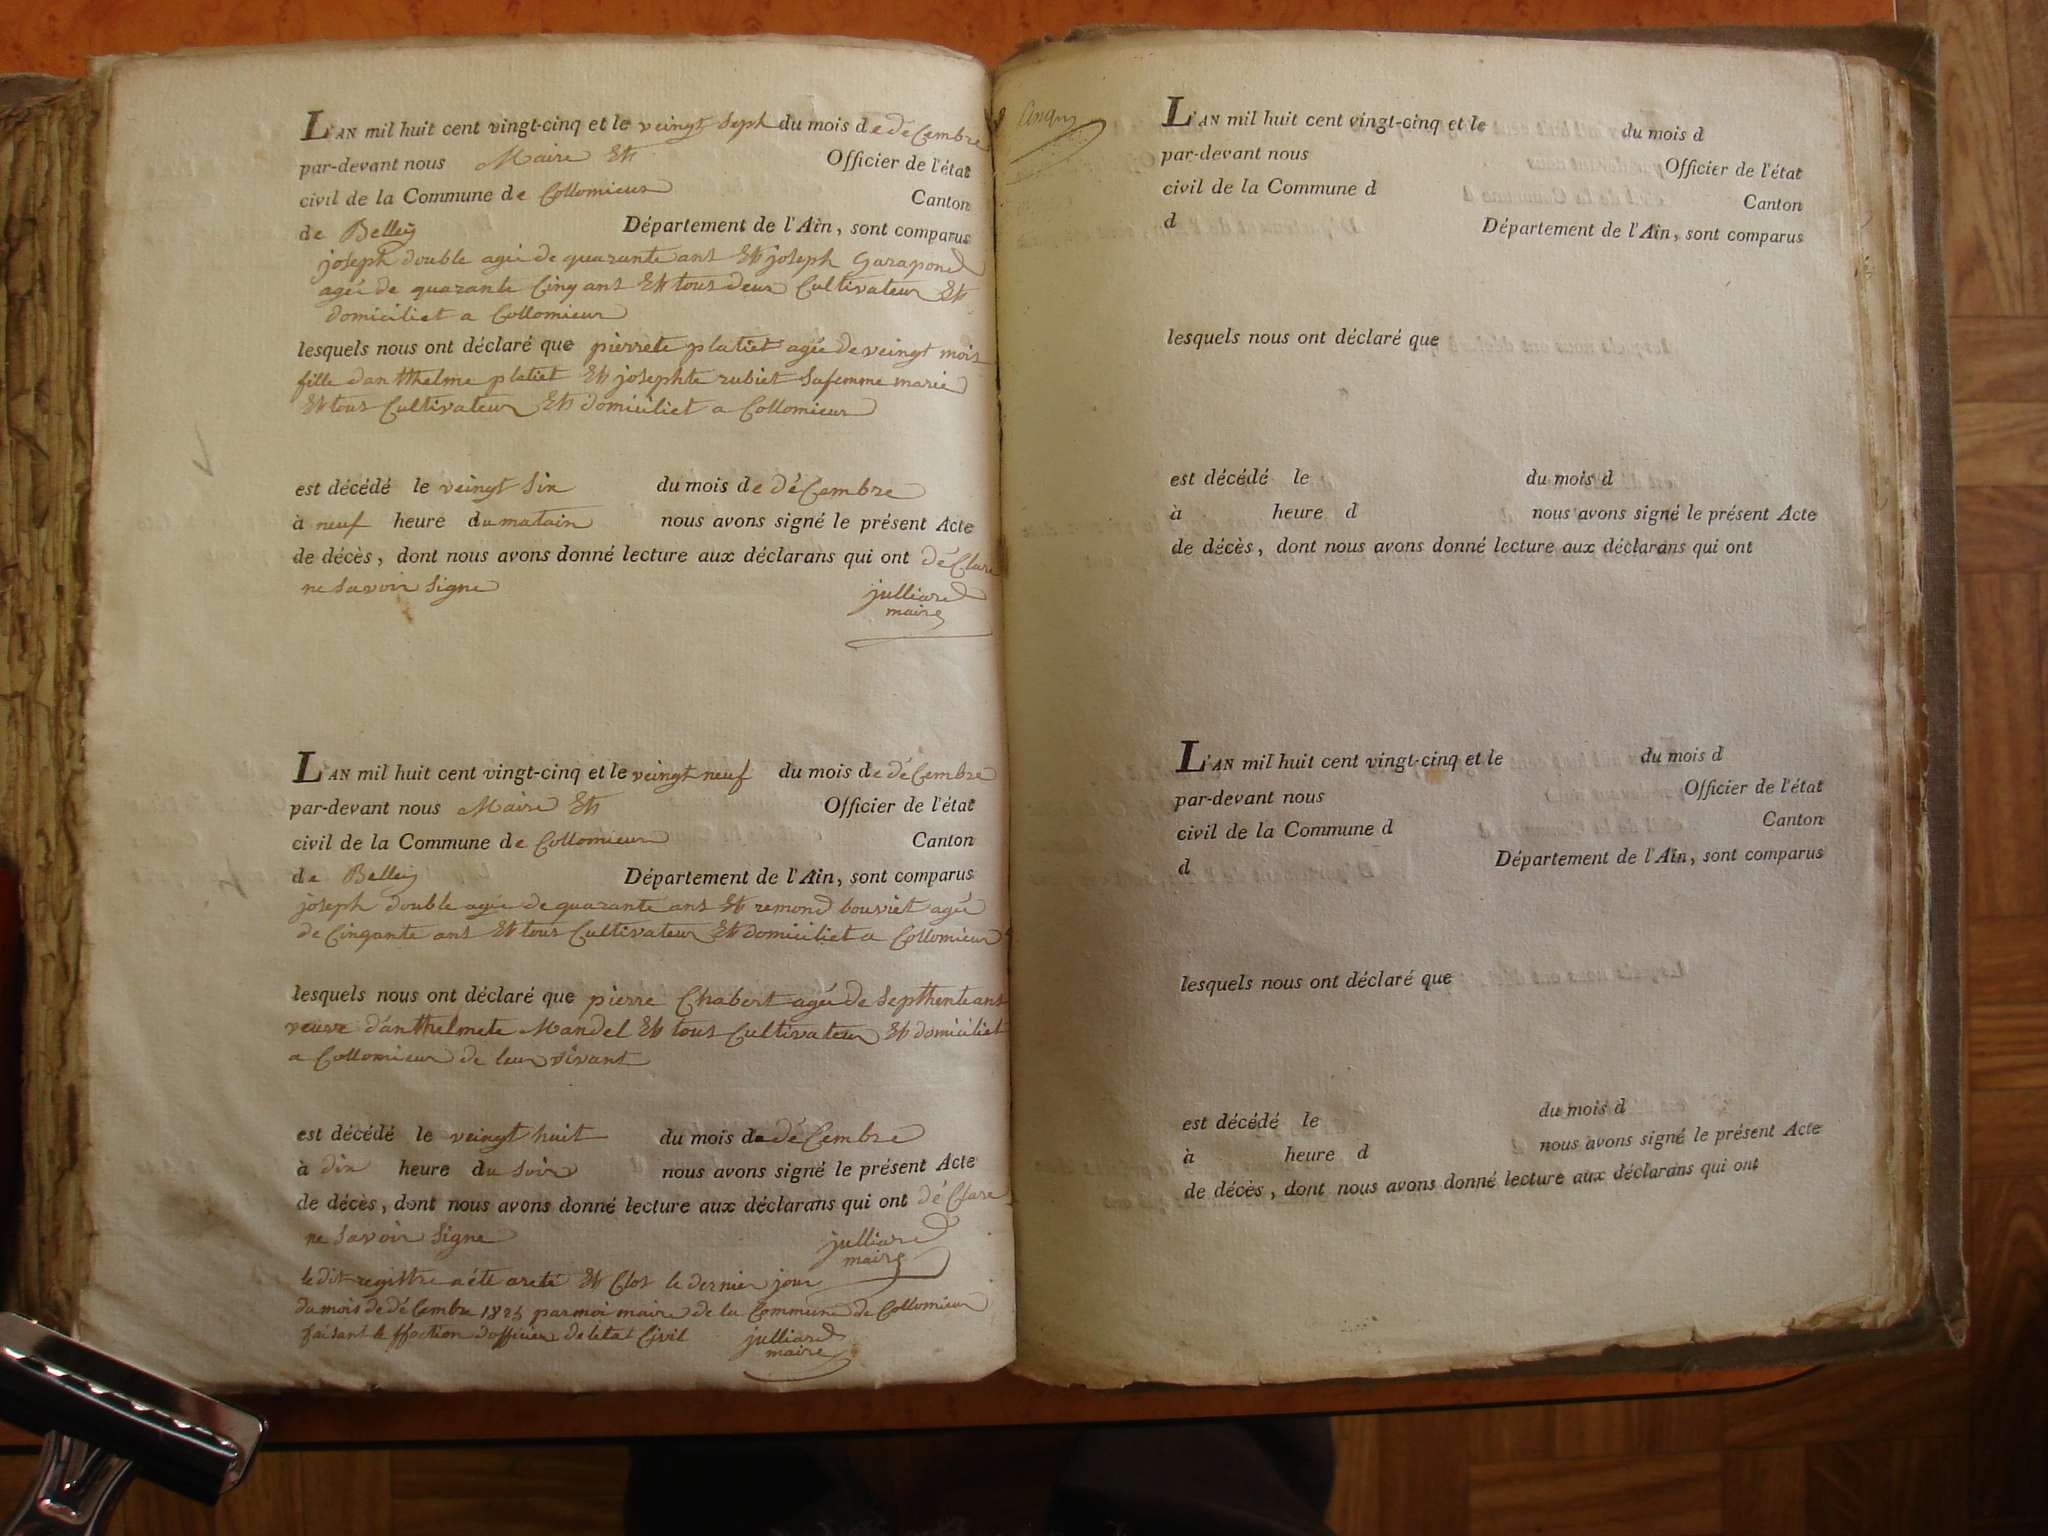 L'AN mil huit cent vingt-cinq et le veingt Seph du mois de déCembre
par-devant nous Maire Et Officier de l'état
civil de la Commune de Collomieux Canton
de Belley Département de l'Ain, sont comparus
joseph double agée de quarante ans Et joseph Garapond
agée de quarante Cinq ans Et tous deux Cultivateur Et
domiciliet a Collomieux
lesquels nous ont déclaré que pierrete platiet agée de veingt mois
fille d'antthelme platiet Et josephte rubiet Safemme marie
Et tous Cultivateur Et domiciliet a Collomieux
est décédé le veingt Six du mois de déCembre
à neuf heure du matain nous avons signé le présent Acte
de décès, dont nous avons donné lecture aux déclarans qui ont déClare
ne Savoir Signe julliard
maire
L'AN mil huit cent vingt-cinq et le veingt neuf du mois de déCembre
par-devant nous Maire Et Officier de l'état
civil de la Commune de Collomieux Canton
de Belley Département de l'Ain, sont comparus
joseph double agée de quarante ans Et remond bouviet agée
de Cinqante ans Et tous Cultivateur Et domiciliet a Collomieux
lesquels nous ont déclaré que pierre Chabert agée de Septhente ans
veuve d'antthelmete Mandel Et tous Cultivateur Et domiciliet
a Collomieux de leur vivant
est décédé le veingt huit du mois de déCembre
à dix heure du Soir nous avons signé le présent Acte
de décès, dont nous avons donné lecture aux déclarans qui ont déClare
ne Savoir Signe julliard
maire
le dit registtre a été areté Et Clos le dernier jour
du mois de déCembre 1825 par moi maire de la Commune de Collomieux
faisant le ffoction d'officier de létat Civil julliard
maire
L'AN mil huit cent vingt-cinq et le du mois d
par-devant nous Officier de l'état
civil de la Commune d Canton
d Département de l'Ain, sont comparus
lesquels nous ont déclaré que
est décédé le du mois d
à heure d nous avons signé le présent Acte
de décès, dont nous avons donné lecture aux déclarans qui ont
L'AN mil huit cent vingt-cinq et le du mois d
par-devant nous Officier de l'état
civil de la Commune d Canton
d Département de l'Ain, sont comparus
lesquels nous ont déclaré que
est décédé le du mois d
à heure d nous avons signé le présent Acte
de décès, dont nous avons donné lecture aux déclarans qui ont